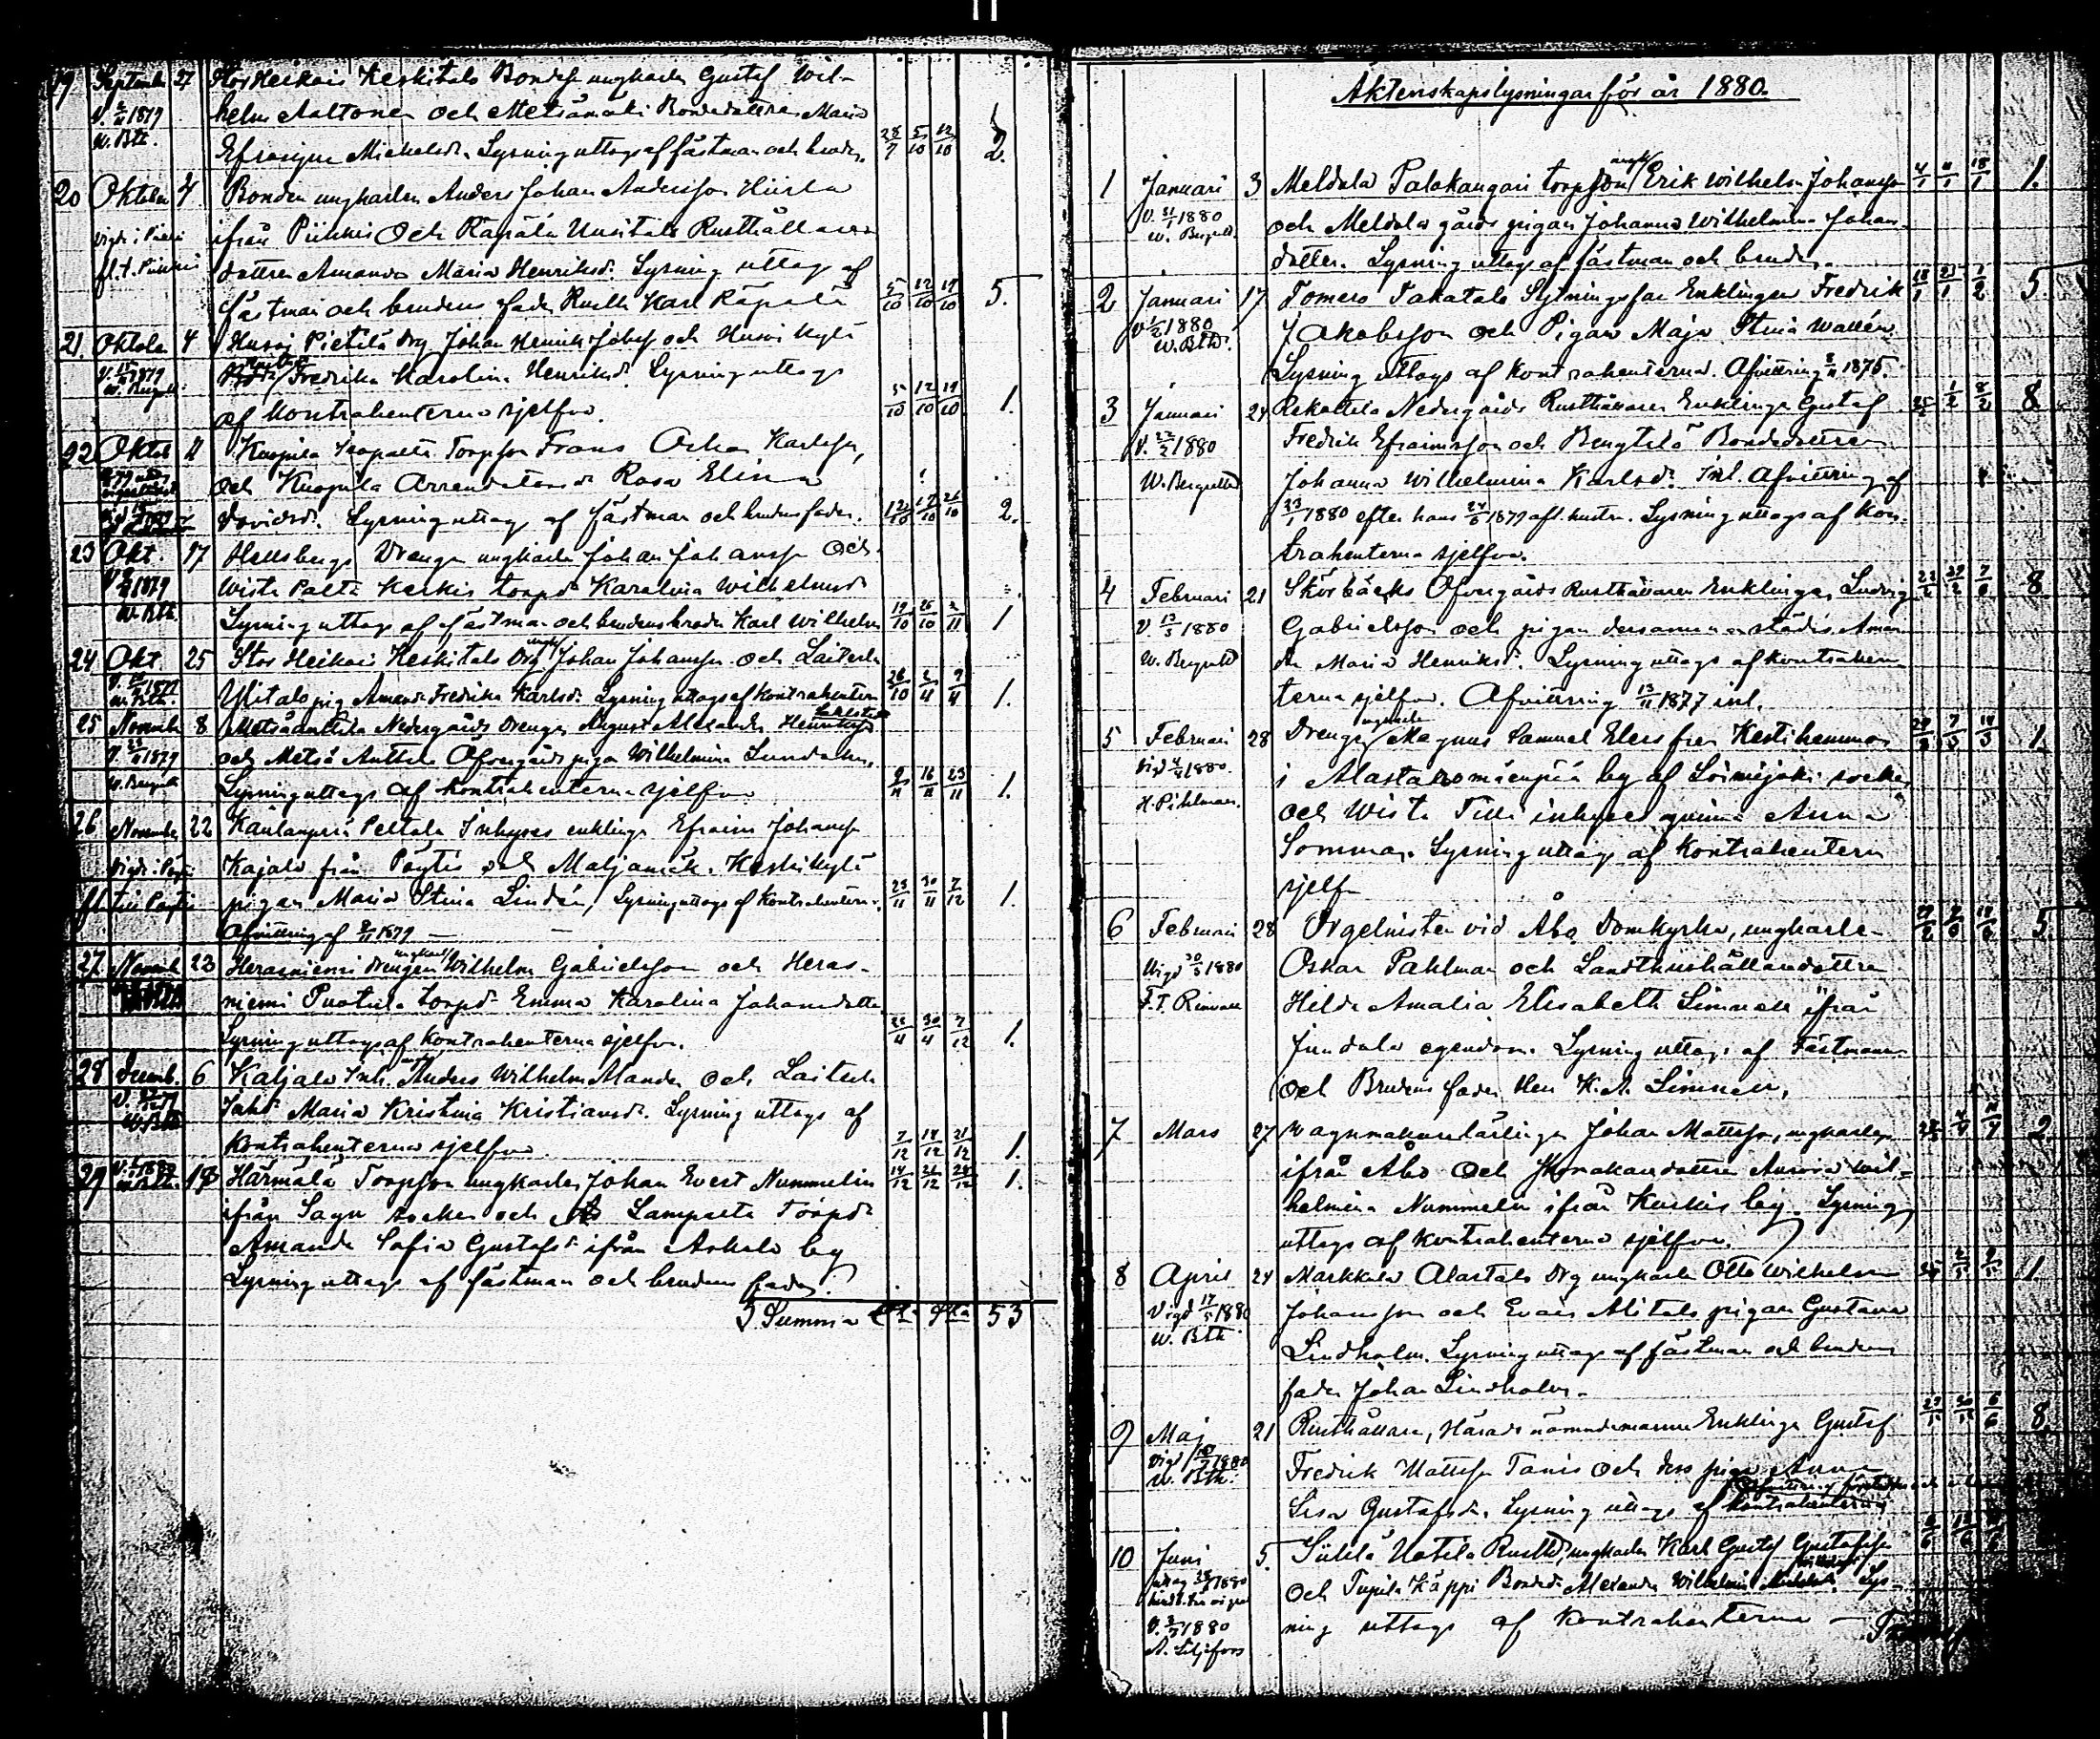 19 September 27 Stor Heikois Keskitalo Bondes. ungkarlen Gustaf Wil-
V. 1879 helm Aaltonen och Metsämäki Bondedottren Maria
W. Bth. Efrosyne Michelsdr. Lysning uttogs af fästman och bruden. 28/9 5/10 12/10 2.
20 Oktober 4 Bonden ungkarlen Anders Johan Andersson Hiisla
ifrån Piikkis och Räpälä Uusitalo Rusthållare-
dottren Amanda Maria Henriksdr. Lysning uttogs af
fästman och brudens fader Rusth. Karl Räpälä 5/10 12/10 19/10 5.
21. Oktober 4 Husoi Pietilä drg Johan Henrik Johss. och Husoi Kylä
1879 Fredrika Karolina Henriksdr. Lysning uttogs
af Kontrahenterna sjelfva. 5/10 12/10 19/10 1.
22 Oktob. 11 Torpson Frans Oskar Karlsson,
och Arrendatorsdr. Rosa Elina
Davidsdr. Lysning uttogs af fästman och brudens fader. 12/10 19/10 26/10 2.
23 Okt. 17 Drengen ungkarlen Johan Johansson och
1879 Wista Palta Keskis torpdr. Karolina Wilhelmsdr.
W. Bth. Lysning uttogs af fästman och brudens broder Karl Wilhelm 19/10 26/10 2/11 1
24 Okt 25 Stor Heikois Keskitalo drg ungk. Johan Johansson och Laiterla
Ylitalo pig. Amanda Fredrika Karlsdr. Lysning uttogs af Kontrahenterna 26/10 2/11 9/11 1.
25 Novemb. 8 Nedergårds Drengen August Alexander
1879 och Metsä Anttila Öfvergårds pigan Wilhelmina Lundahn.
W. Bergroth Lysning uttogs af Kontrahenterna sjelfva 9/11 16/11 23/11 1.
26 November 22 Peltola Inhyses enklingen Efraim Johansson
Kajala från Pöytis och Maljamäki Keskikylä
pigan Maria Stina Lindén, Lysning uttogs af Kontrahenterna. 23/11 30/11 7/12 1.
Afvittring af 1879 —
27 Novemb. 23 Herasniemi drengen ungkarl Wilhelm Gabrielsson och Heras-
niemi Puotula torpdr. Emma Karolina Johansdotter
Lysning uttogs af Kontrahenterna sjelfva. 23/11 30/11 7/12 1.
28 Decemb. 6 Kaljala Inh. ungk. Anders Wilhelm Alander och Laiterla
Maria Kristina Kristiansdr. Lysning uttogs af
W. Bth Kontrahenterna sjelfva. 7/12 14/12 21/12 1.
29 13 Härmälä Torpson ungkarlen Johan Evert Nummelin 14/12 21/12 28/12 1.
ifrån Sagu socken och Lampaeta Torpdr.
Amanda Sofia Gustafsdr. ifrån Askala by
Lysning uttogs af fästman och brudens fader.
Summa 53
Äktenskapslysningar för år 1880.
1 Januari 3 Meldola Palokangari torpson ungk. Erik Wilhelm Johansson 4/1 11/1 18/1 1.
V. 31/1 1880 och Meldola gårds pigan Johanna Wilhelmina Johans-
W. Bergroth dotter. Lysning uttogs af fästman och bruden.
2 Januari 17 Tomero Takatalo Sytningsfar Enklingen Fredrik 18/1 25/1 1/2 5
1880 Jakobsson och Pigan Maja Stina Wallén.
W. Bth. Lysning uttogs af Kontrahenterna. Afvittring 1875.
3 Januari 24 Rekottila Nedergårds Rusthållaren Enklingen Gustaf 25/1 1/2 8/2 8
1880 Fredrik Efraimsson och Bengtilä Bondedottren
W. Bergroth Johanna Wilhelmina Karlsdr. Inl. Afvittring af
23/1 1880 efter hans 24/6 1879 afl. hustru. Lysning uttogs af Kon-
trahenterna sjelfva.
4 Februari 21 Skörbäcks Öfvergårds Rusthållaren Enklingen Ludvig 22/2 29/2 7/3 8
V. 13/3 1880 Gabrielsson och pigan dersammanstädes Aman-
W. Bergroth da Maria Henriksdr. Lysning uttogs af Kontrahen-
terna sjelfva. Afvittring 13/11 1877 inl.
5 Februari 28 Drengen ungkarlen Magnus Samuel Elers från Kestihemmo 29/2 7/3 14/3 1.
1880 i Alastaro by af Loimijoki socken
H. Pihlman. och Wista Tilli inhyses qvinna Anna
Sommar. Lysning uttogs af Kontrahenterna
sjelfva
6 Februari 28 Orgelnisten vid Åbo Domkyrka, ungkarlen 29/2 7/3 14/3 5.
Vigd 30/3 1880 Oskar Pahlman och Landthushållaredottren
Hilda Amalia Elisabeth Limnell ifrån
Jundala egendom. Lysning uttogs af Fästmannen
och Brudens fader Herr K. A. Limnell.
7 Mars 27 Vagnmakarelärlingen Johan Mattsson, ungkarlen 28/3 4/4 11/4 2.
ifrån Åbo och Skomakaredottren Aurora Wil-
helmina Nummelin ifrån Kuskis by. Lysning
uttogs af Kontrahenterna sjelfva.
8 April 24 Markkula Alastalo Drg ungkarlen Otto Wilhelm 25/4 2/5 9/5 1.
Vigd 17/5 1880 Johansson och Evais Alitalo pigan Gustava
W. Bth. Lindholm. Lysning uttogs af fästman och brudens
fader Johan Lindholm.
9 Maj 21 Rusthållaren, Häradsnämndemannen Enklingen Gustaf 23/5 30/5 6/6 8
Vigd 1880 Fredrik Mattsson Tanis och dess pigan Anna
W. Bth. Lisa Gustafsdr. Lysning uttogs af Kontrahenterna
10 Juni 5 Uotila Rusths. ungkarlen Karl Gustaf Gustafsson 6/6 13/6
1880 och Tupila Käppi Bondedr. Alexandra Wilhelmina Lys-
V. 1880 ning uttogs af Kontrahenterna —
A. Liljefors